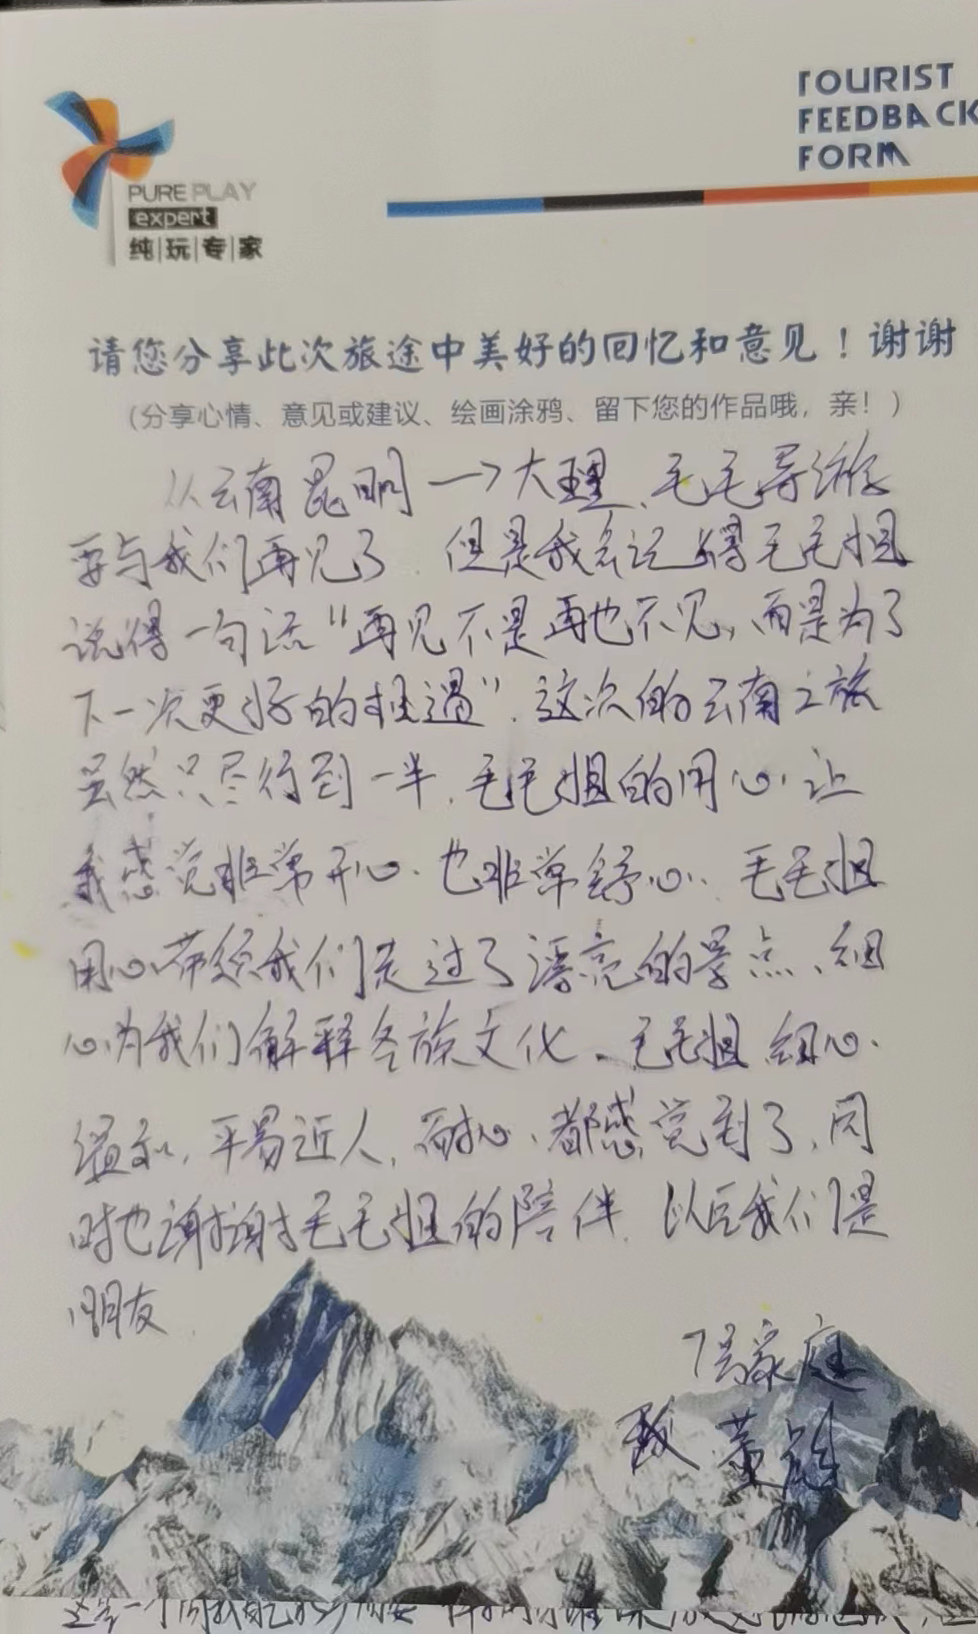 TOURIST
FEEDBACK
FORM
PURE PLAY
expert
纯|玩|专|家
请您分享此次旅途中美好的回忆和意见！谢谢
（分享心情、意见或建议、绘画涂鸦、留下您的作品哦，亲！）
从云南昆明→大理、毛毛导游
要与我们再见了．但是我会记得毛毛姐
说得一句话“再见不是再也不见，而是为了
下一次更好的相遇”．这次的云南之旅
虽然只尽行到一半．毛毛姐的用心让
我感觉非常开心．也非常舒心．毛毛姐
用心带给我们走过了漂亮的景点、细
心为我们解释各族文化、毛毛姐细心．
温和，平易近人，耐心、都感觉到了，同
时也谢谢毛毛姐的陪伴．以后我们是
朋友
家庭
致 董